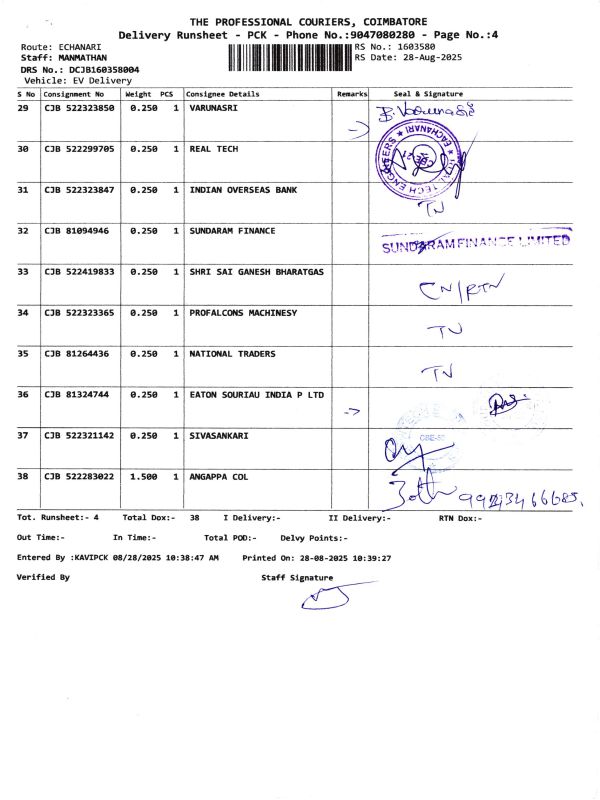 THE PROFESSIONAL COURIERS, COIMBATORE
Delivery Runsheet - PCK - Phone No.:9047080280 - Page No.:4
Route: ECHANARI RS No.: 1603580
Staff: MANMATHAN RS Date: 28-Aug-2025
DRS No.: DCJB160358004
Vehicle: EV Delivery
S No Consignment No Weight PCS Consignee Details Remarks Seal & Signature
29 CJB 522323850 0.250 1 VARUNASRI
30 CJB 522299705 0.250 1 REAL TECH
31 CJB 522323847 0.250 1 INDIAN OVERSEAS BANK TN
32 CJB 81094946 0.250 1 SUNDARAM FINANCE SUNDARAM FINANCE LIMITED
33 CJB 522419833 0.250 1 SHRI SAI GANESH BHARATGAS CN/RTN
34 CJB 522323365 0.250 1 PROFALCONS MACHINESY TN
35 CJB 81264436 0.250 1 NATIONAL TRADERS TN
36 CJB 81324744 0.250 1 EATON SOURIAU INDIA P LTD
37 CJB 522321142 0.250 1 SIVASANKARI
38 CJB 522283022 1.500 1 ANGAPPA COL
Tot. Runsheet:- 4 Total Dox:- 38 I Delivery:- II Delivery:- RTN Dox:-
Out Time:- In Time:- Total POD:- Delvy Points:-
Entered By :KAVIPCK 08/28/2025 10:38:47 AM Printed On: 28-08-2025 10:39:27
Verified By Staff Signature